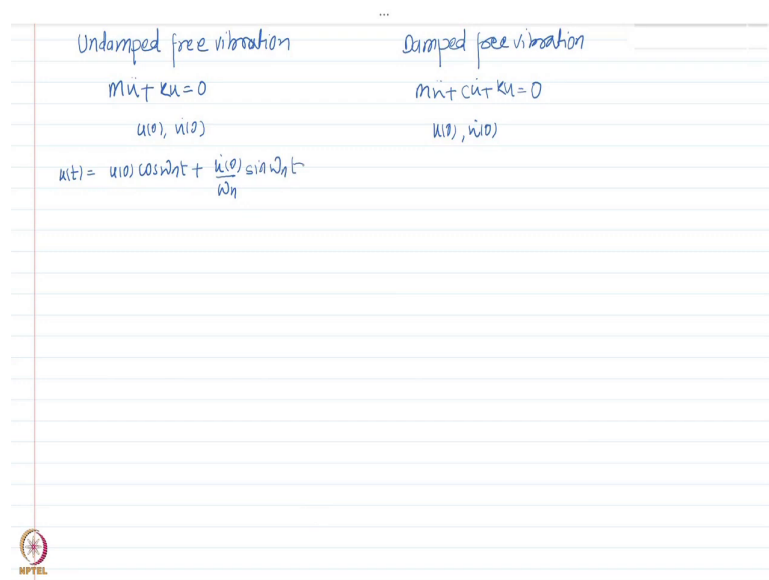 Undamped free vibration
mü + ku = 0
u(0), u̇(0)
u(t) = u(0) cosωnt + u̇(0)/ωn sinωnt
Damped free vibration
mü + cu̇ + ku = 0
u(0), u̇(0)
NPTEL